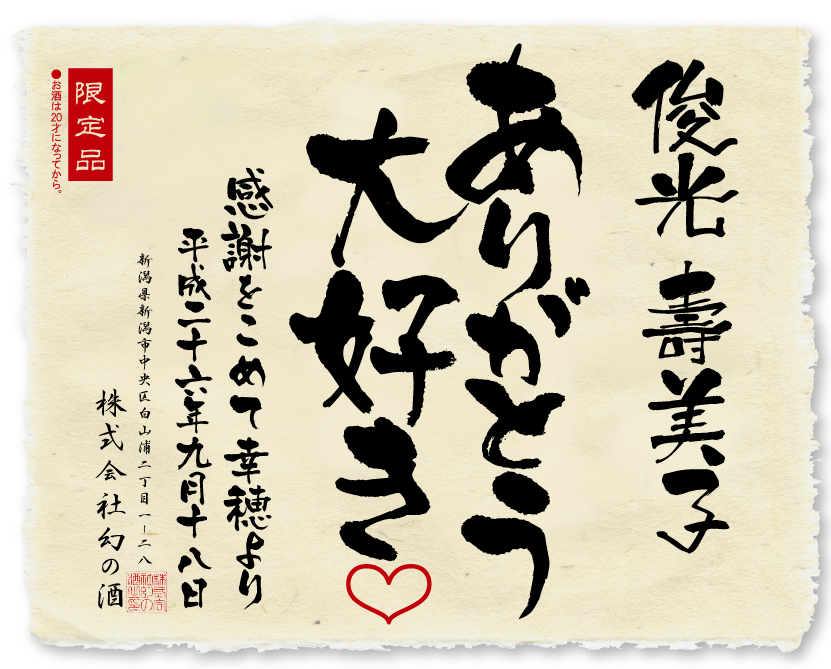 俊光 壽美子
ありがとう
大好き
感謝をこめて 幸穂より
平成二十六年九月十八日
新潟県新潟市中央区白山浦二丁目一ー二八
株式会社幻の酒
限定品
●お酒は20才になってから。